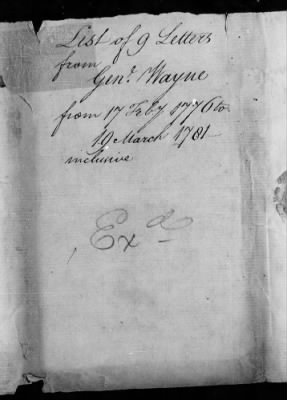 List of 9 Letters
from
Genl. Wayne
from 17 Feby 1776 to
19 March 1781
inclusive
Exd